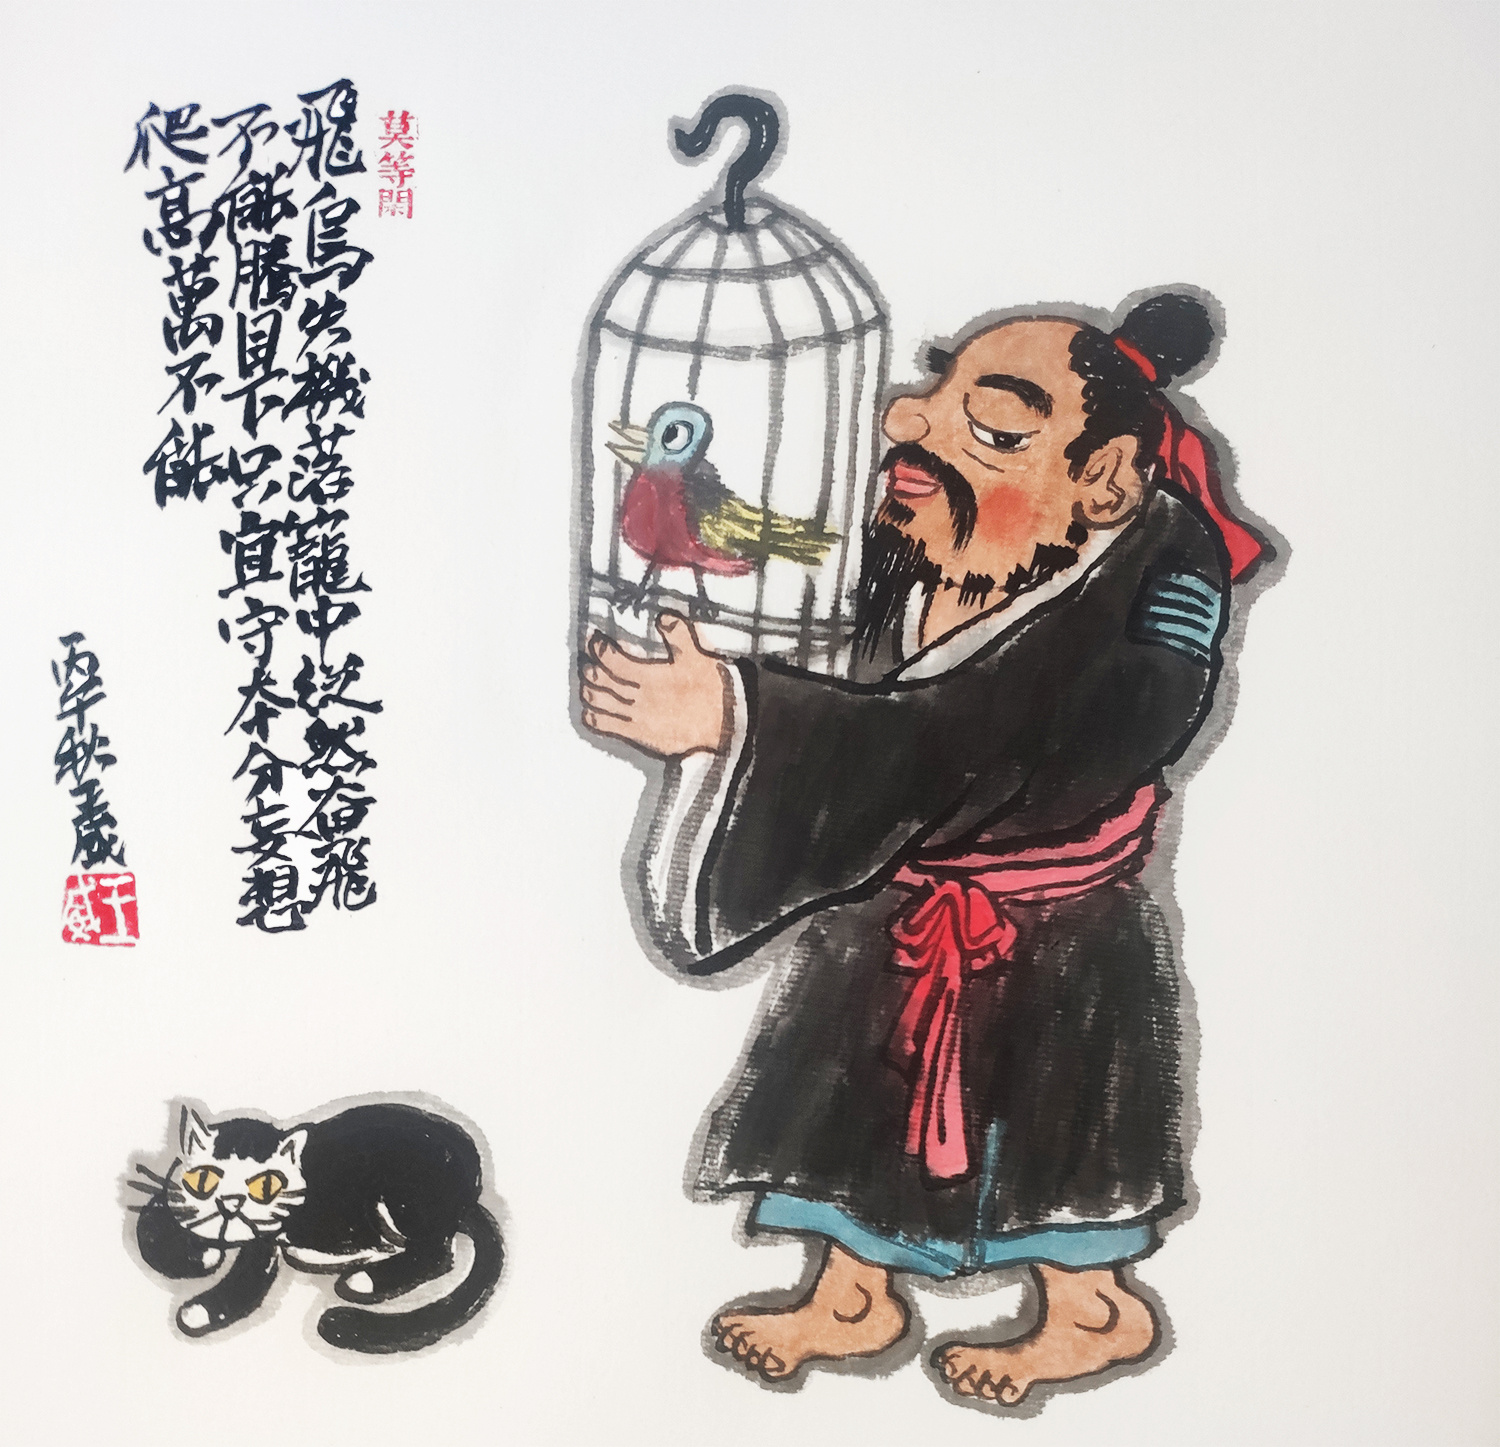 莫等閑
飛鳥失機落籠中縱然奋飛
不能騰目下只宜守夲分妄想
爬高萬不能
丙午秋王威
王威